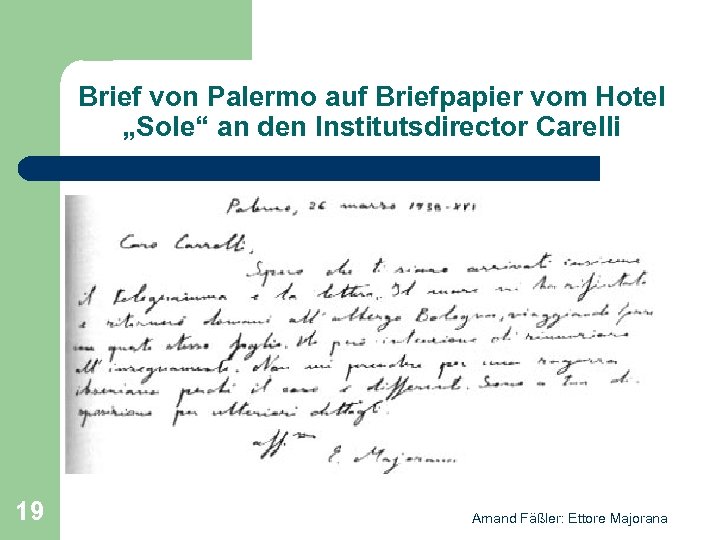 Brief von Palermo auf Briefpapier vom Hotel
„Sole“ an den Institutsdirector Carelli
Palermo, 26 marzo 1938-XVI
Caro Carrelli,
Spero che ti siano arrivati insieme
il telegramma e la lettera. Il mare mi ha rifiutato
e ritornerò domani all'albergo Bologna, viaggiando forse
con questo stesso foglio. Ho però intenzione di rinunziare
all'insegnamento. Non mi prendere per una ragazza
ibseniana perché il caso è differente. Sono a tua di
sposizione per ulteriori dettagli.
aff.mo
E. Majorana
19
Amand Fäßler: Ettore Majorana